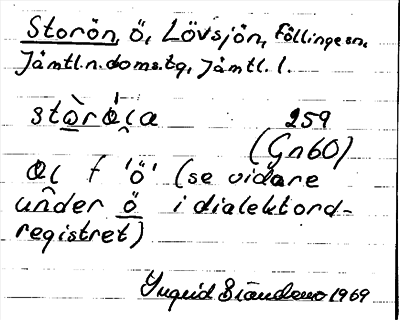 Storön, ö, Lövsjön, Föllinge sn,
Jämtl.n.doms.tg, Jämtl. l.
259
(Gn 60)
f 'ö' (se vidare
under ö i dialektord-
registret)
Ingrid 1969